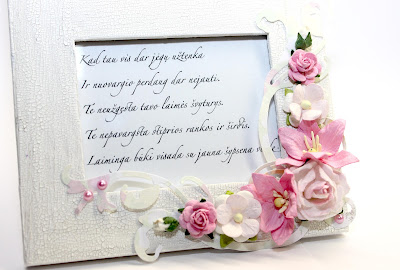 Kad tau vis dar jėgų užtenka
Ir nuovargio perdaug dar nejauti.
Te neužgęsta tavo laimės švyturys.
Te nepavargsta stiprios rankos ir širdis.
Laiminga būki visada su jauna šypsena